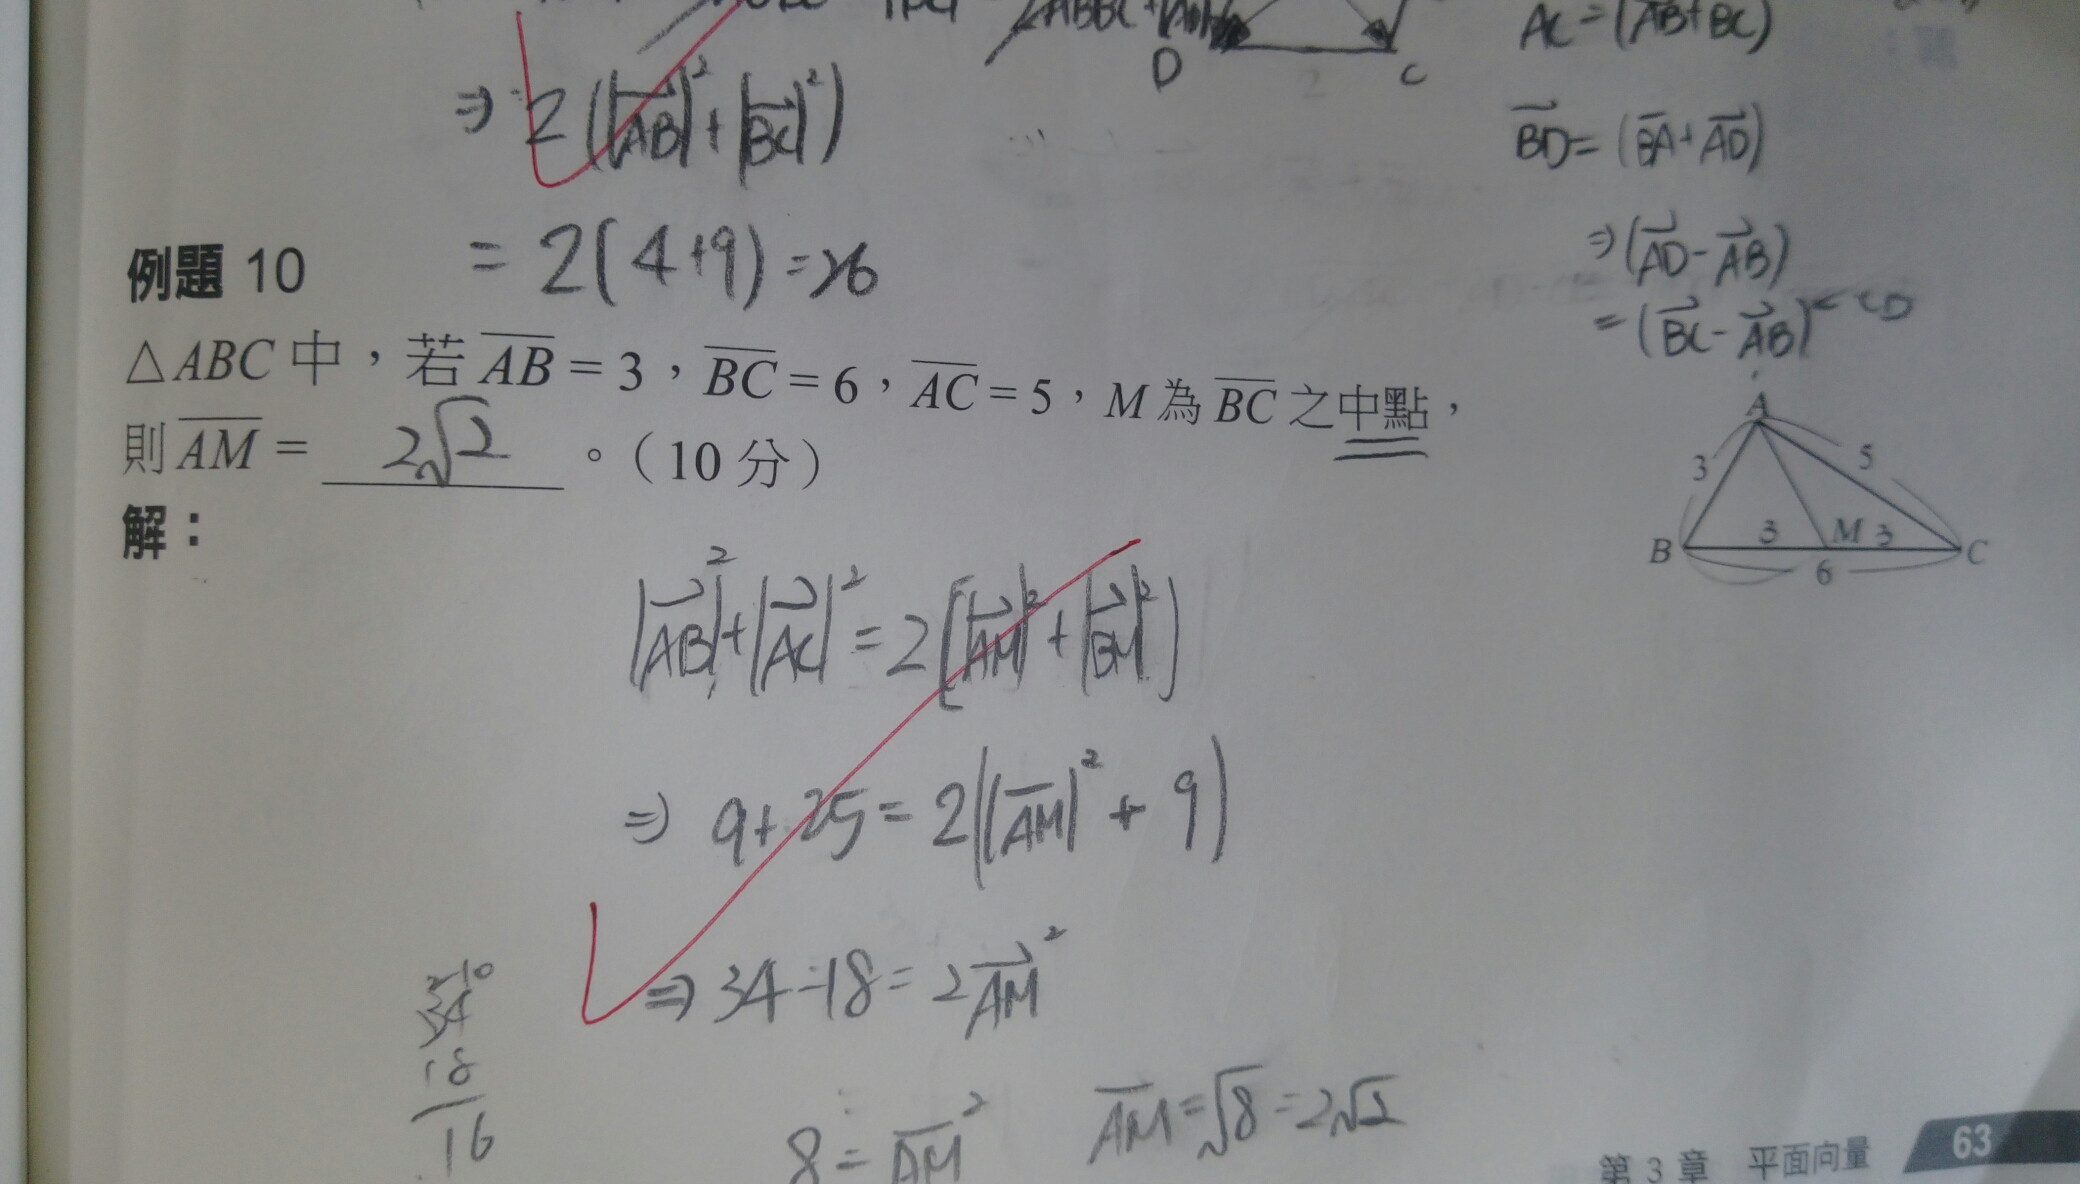 AC=(AB+BC)
D
2
C
⇒ 2(|AB|²+|BC|²)
BD=(BA+AD)
=2(4+9)=26
⇒(AD-AB)
=(BC-AB)
CD
例題 10
△ABC中，若AB=3，BC=6，AC=5，M為BC之中點，
則AM= 2√2 。(10分)
解：
A
3
5
B
3
M
3
C
6
|AB|²+|AC|²=2[|AM|²+|BM|²]
⇒ 9+25=2(|AM|²+9)
⇒ 34-18=2AM²
2 10
34
18
16
8=AM²
AM=√8=2√2
第3章 平面向量 63